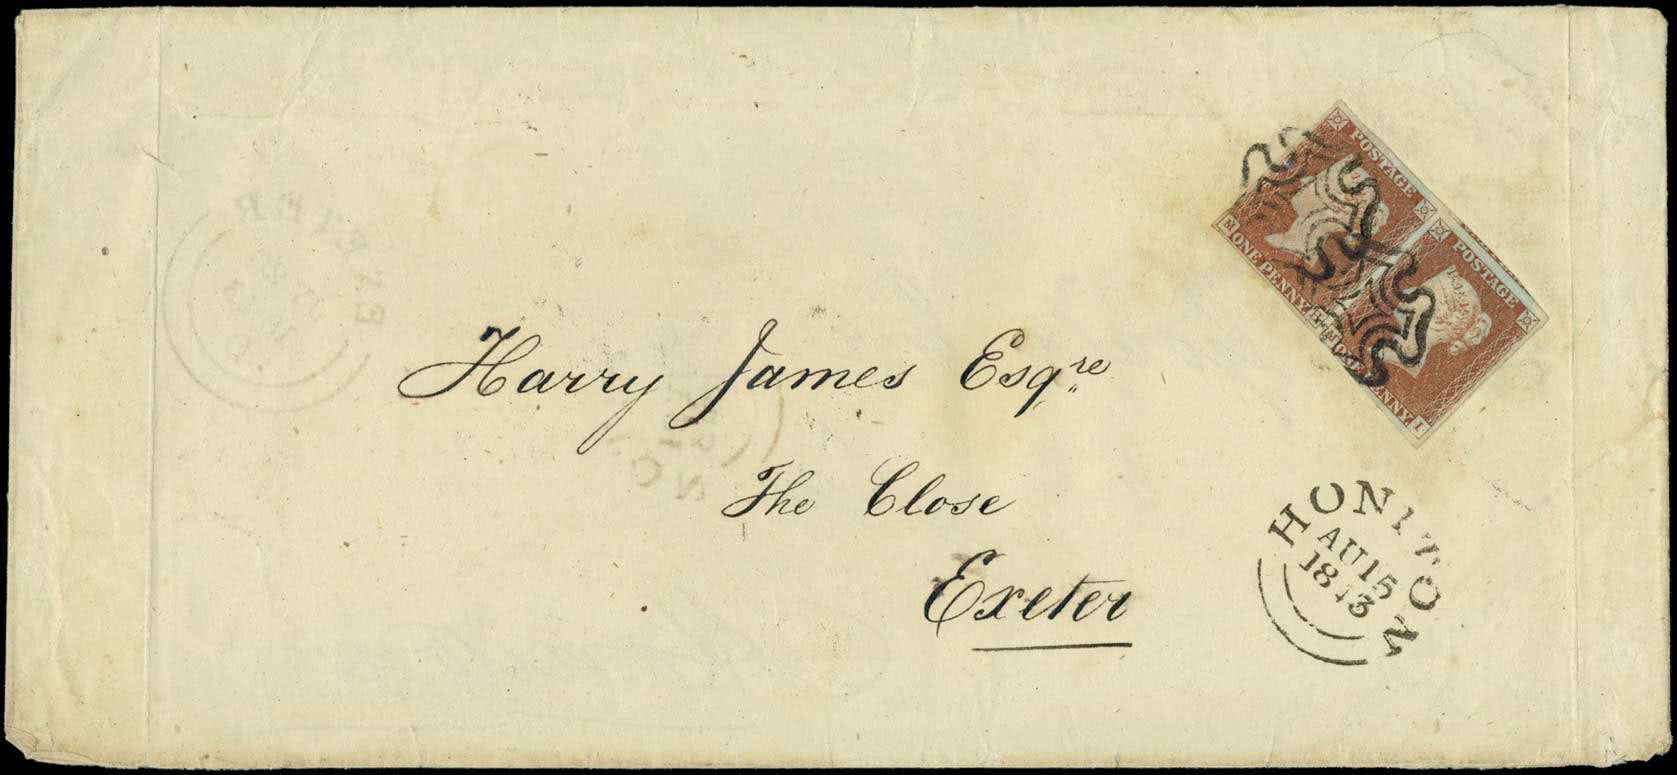 POSTAGE
ONE PENNY
POSTAGE
PENNY
Harry James Esqre
The Close
Exeter
HONITON
AU 15
1843